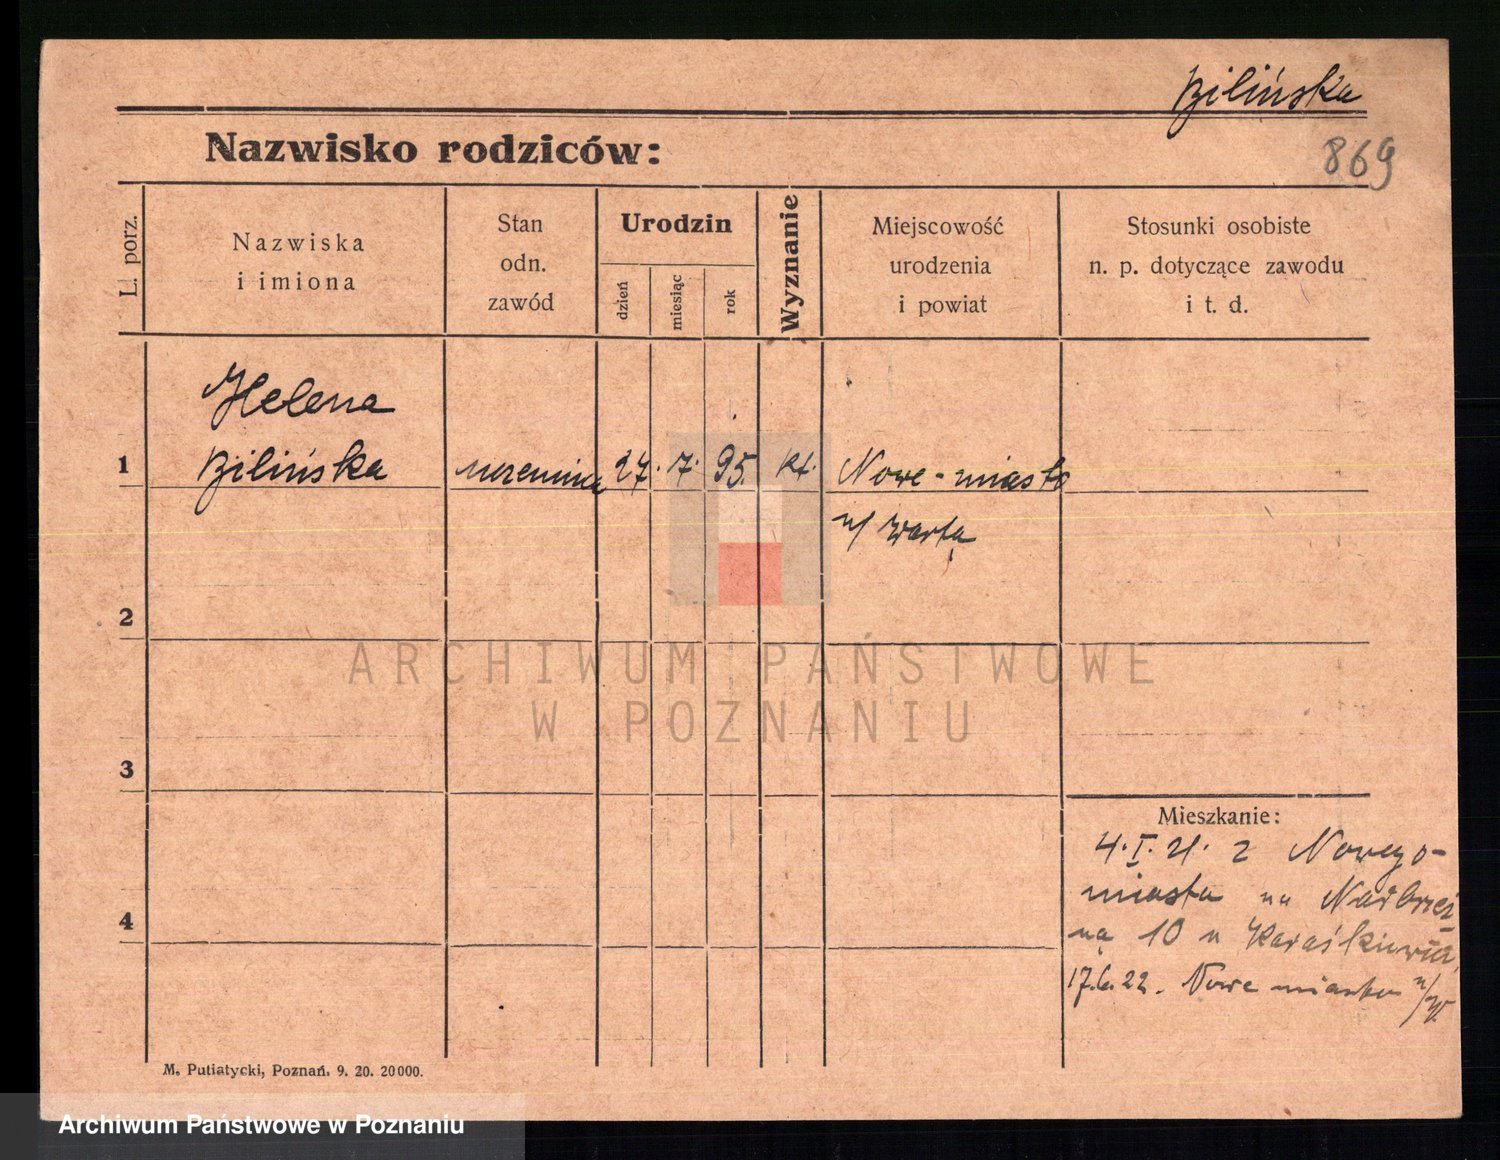 Bilińska
Nazwisko rodziców:
869
L. porz.
Nazwiska
i imiona
Stan
odn.
zawód
Urodzin
dzień
miesiąc
rok
Wyznanie
Miejscowość
urodzenia
i powiat
Stosunki osobiste
n. p. dotyczące zawodu
i t. d.
Helena
1 Bilińska uczennica 27. 7. 95. kt. Nowe-miasto
n/ Wartą
2
3
4
ARCHIWUM PAŃSTWOWE
W POZNANIU
Mieszkanie:
4. I. 21. z Nowego-
miasta na
10
17.6.22. Nowe miasto n/W.
M. Putiatycki, Poznań. 9. 20. 20000.
Archiwum Państwowe w Poznaniu